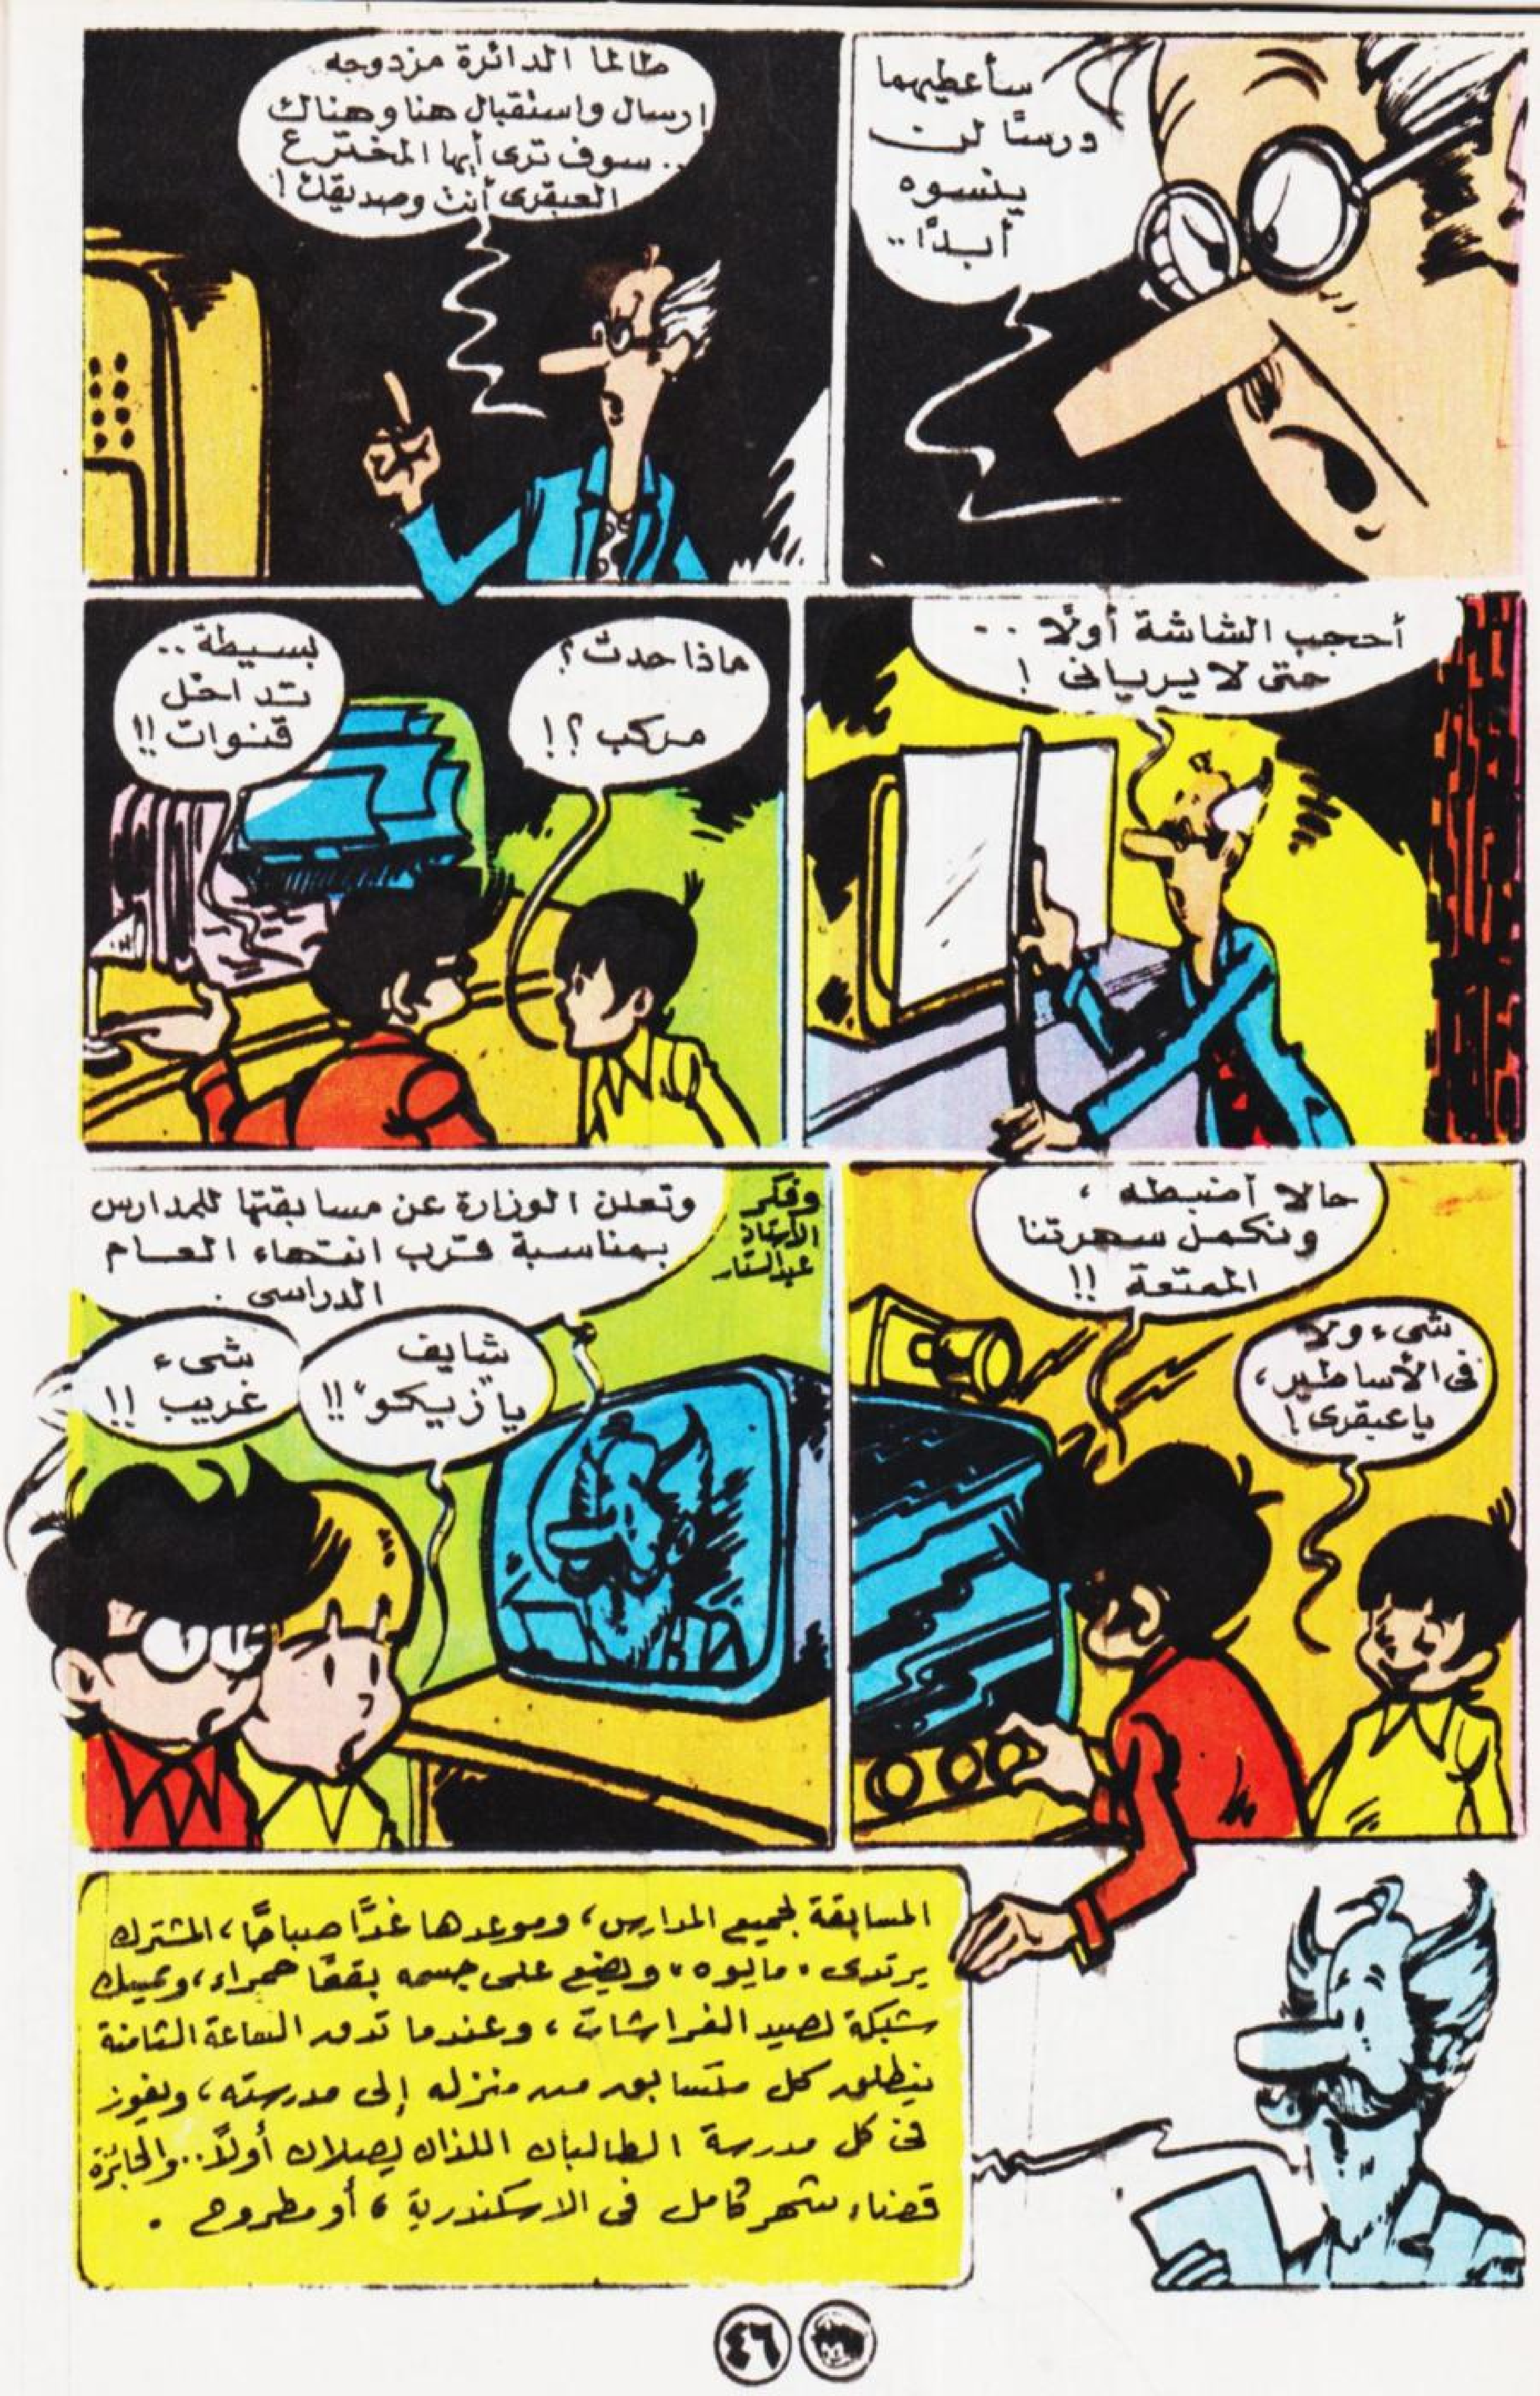 سأعطيهما
درسًا لن
ينسوه
أبدًا ..
طالما الدائرة مزدوجه
إرسال واستقبال هنا وهناك
.. سوف ترى أيها المخترع
العبقرى أنت وصديقك !
أحجب الشاشة أولًا ..
حتى لا يريانى !
ماذا حدث ؟
مركب ؟ !
بسيطة ..
تداخل
قنوات !!
حالا أضبطه ،
ونكمل سهرتنا
الممتعة !!
شىء ولا
فى الأساطير ،
يا عبقرى !
وفكر
الأستاذ
عبدالستار
وتعلن الوزارة عن مسابقتها للمدارس
بمناسبة قرب انتهاء العام
الدراسى .
شايف
يا "زيكو" !!
شىء
غريب !!
المسابقة لجميع المدارس ، وموعدها غدًا صباحًا ، المشترك
يرتدى " مايوه " ويضع على جسمه بقعًا حمراء ، ويمسك
شبكة لصيد الفراشات ، وعندما تدق الساعة الثامنة
ينطلق كل متسابق من منزله إلى مدرسته ، ويفوز
فى كل مدرسة الطالبان اللذان يصلان أولًا .. والجائزة
قضاء شهر كامل فى الاسكندرية ، أو مطروح .
٤٦